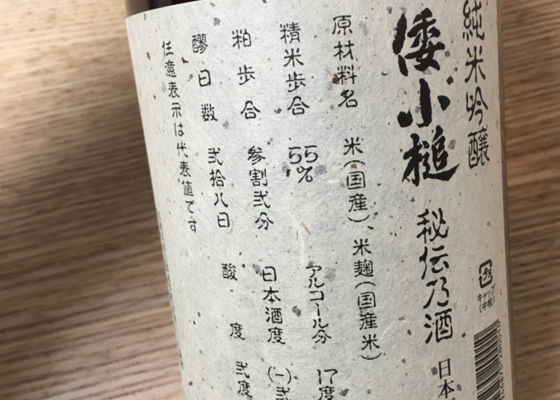 純米吟醸
倭小槌 秘伝乃酒 日本
キャップ
(中栓)
原材料名 米(国産)、米麹(国産米)
精米歩合 55% アルコール分 17度
粕歩合 参割弐分 日本酒度 (一)弐
醪日数 弐拾八日 酸度 弐度
任意表示は代表値です